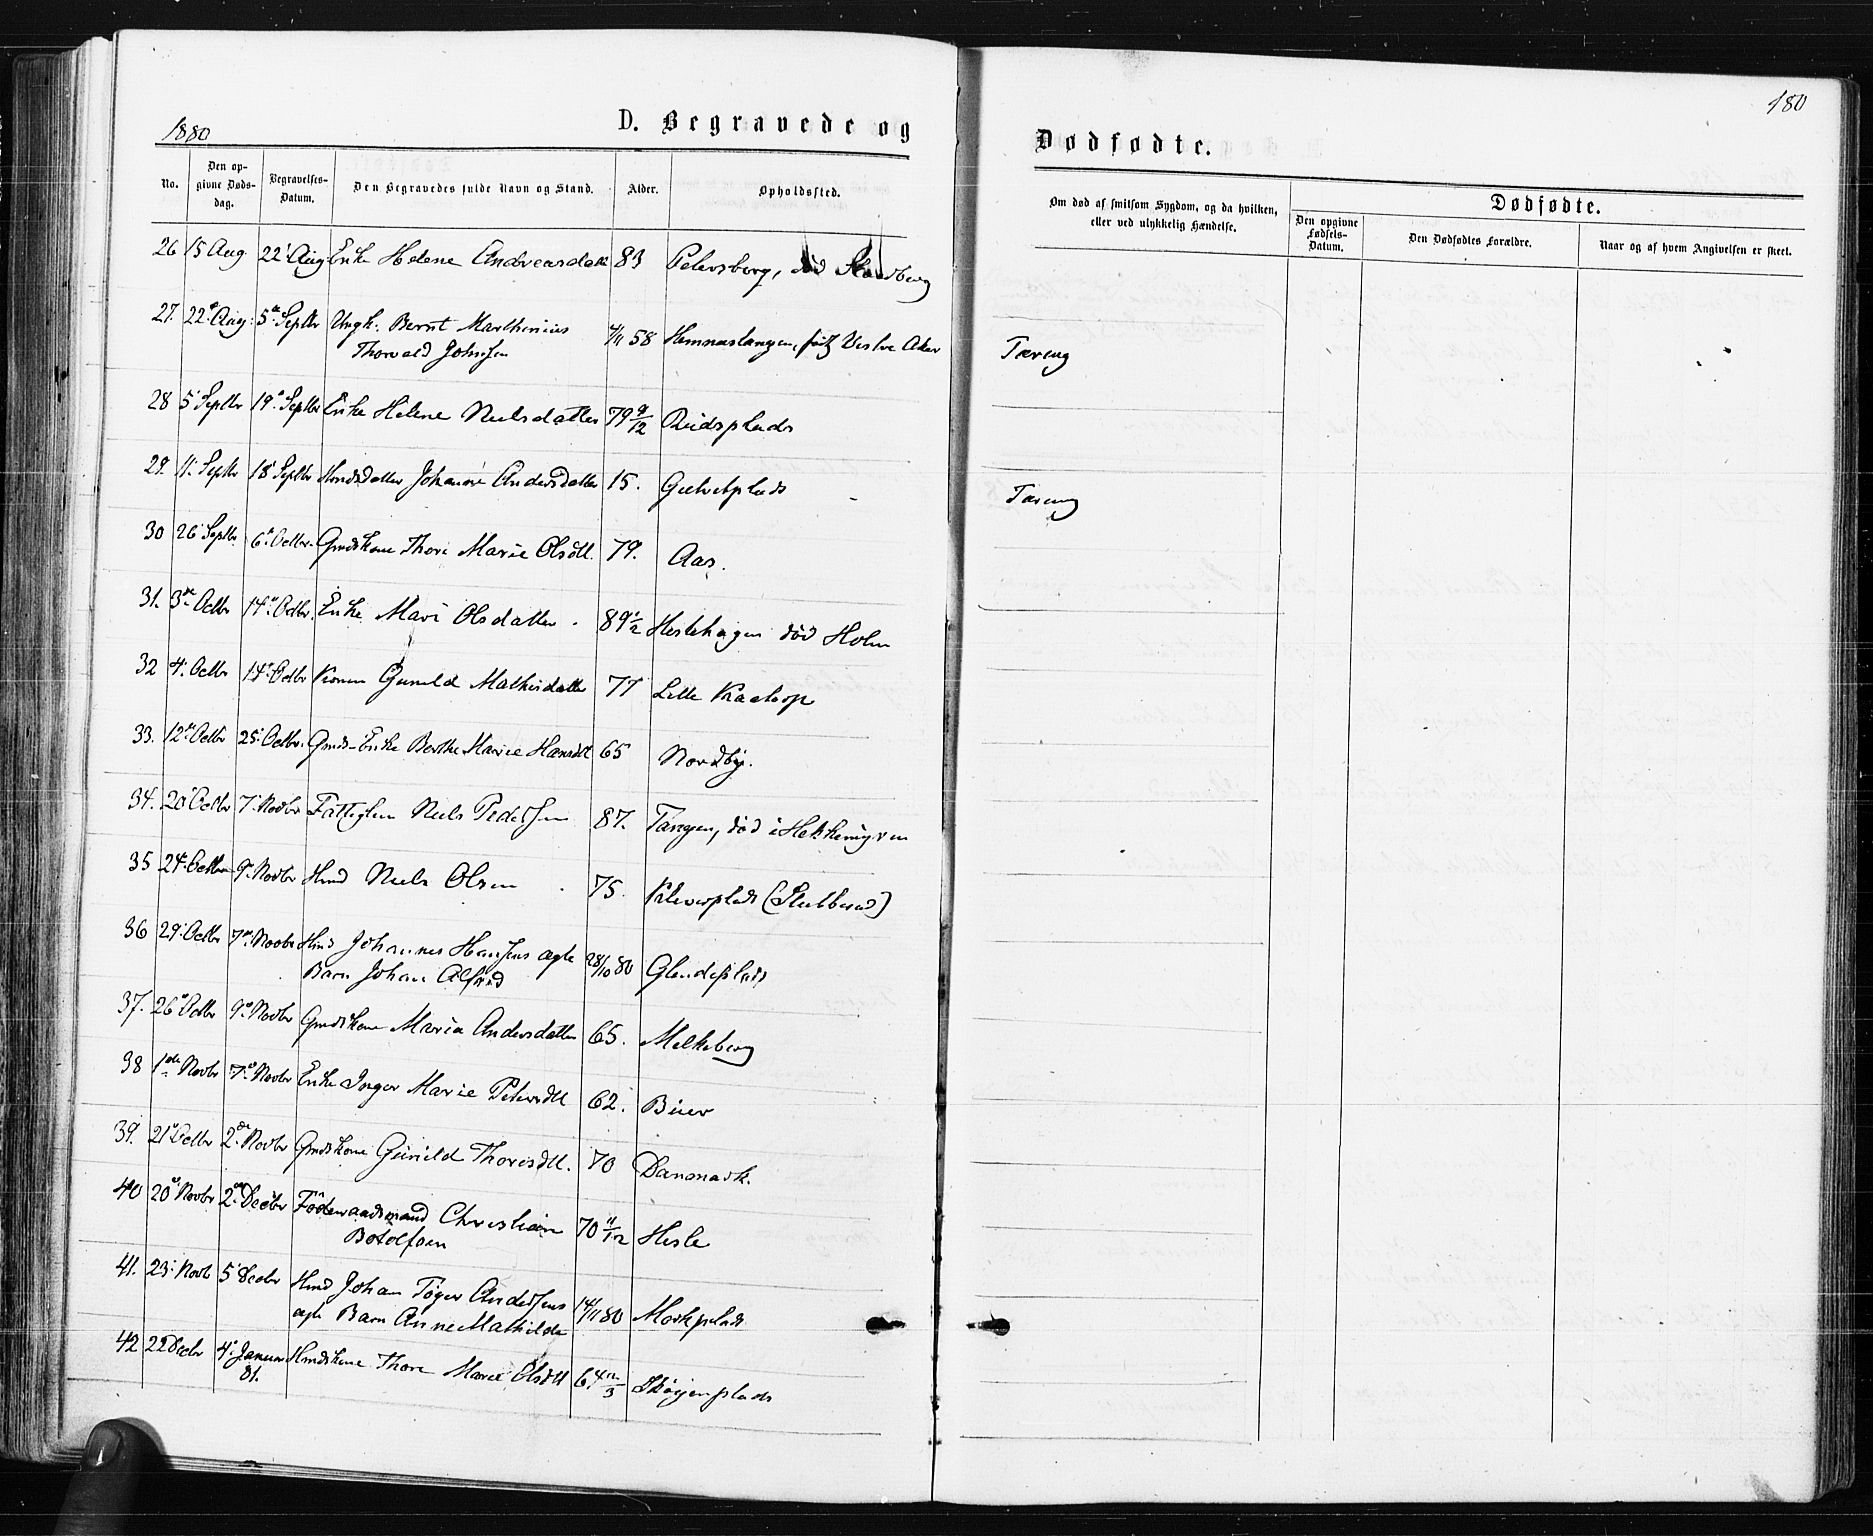 1880
D. Begravede og
Dødfødte.
180
No.
Den opgivne Dødsdag.
Begravelses-Datum.
Den Begravedes fulde Navn og Stand.
Alder.
Opholdssted.
Om død af smitsom Sygdom, og da hvilken, eller ved ulykkelig Hændelse.
Dødfødte.
Den opgivne Fødsels-Datum.
Den Dødfødtes Forældre.
Naar og af hvem Angivelsen er skeet.
26 15 Aug 22 Aug Enke Helene Andreasdatt 83 Petersberg, død
27. 22 Aug 5te Septbr Ungk. Bernt Marthinius 4/11 58 Hemnestangen, født Vestre Aker Tæring
Thorvald Johnsen
28 5 Septbr 19 Septbr Enke Helene Nielsdatter 79 9/12
29. 11 Septbr 18 Septbr Hmdsdatter Johanne Andersdatter 15. Tæring
30 26 Septbr 6 Octbr. Gmdskone Thore Marie Olsdtt. 79. Aas.
31. 3de Octbr 14 Octbr. Enke Mari Olsdatter 89 1/2 Hestehagen død Holm
32 4 Octbr 14 Octbr Konen Gunild Mathisdatter 77 Lille Kragtorp
33. 12te Octbr 25 Octbr. Gmds-Enke Berthe Marie Hansdtt 65 Nordby.
34. 20 Octbr 7 Novbr Fattiglem Niels Pedersen 87. Tangen, død i
35 24 Octbr 9 Novbr Hmd Niels Olsen 75. Kleverplads (Stubberud)
36 29 Octbr 7 Novbr Hmd Johannes Hansens ægte 28/10 80
Barn Johan Alfred
37. 26 Octbr 9 Novbr Gmdskone Maria Andersdatter 65. Melkeberg
38 1ste Novbr 7 Novbr Enke Inger Marie Petersdtt 62. Buer
39. 21 Octbr 2den Novbr Gmdskone Gunild Thoresdtt. 70 Danmark.
40 20 Novbr 2den Decbr Føderaadsmand Christian 70 11/12 Hesle
Botolfsen
41. 23 Novb 5 Decbr Hmd Johan Tøger Andersens 14/11 80 Morkplads
ægte Barn Anne Mathilde
42 22 Decbr 4 Januar Hmdskone Thore Marie Olsdtt Skøienplads
81.